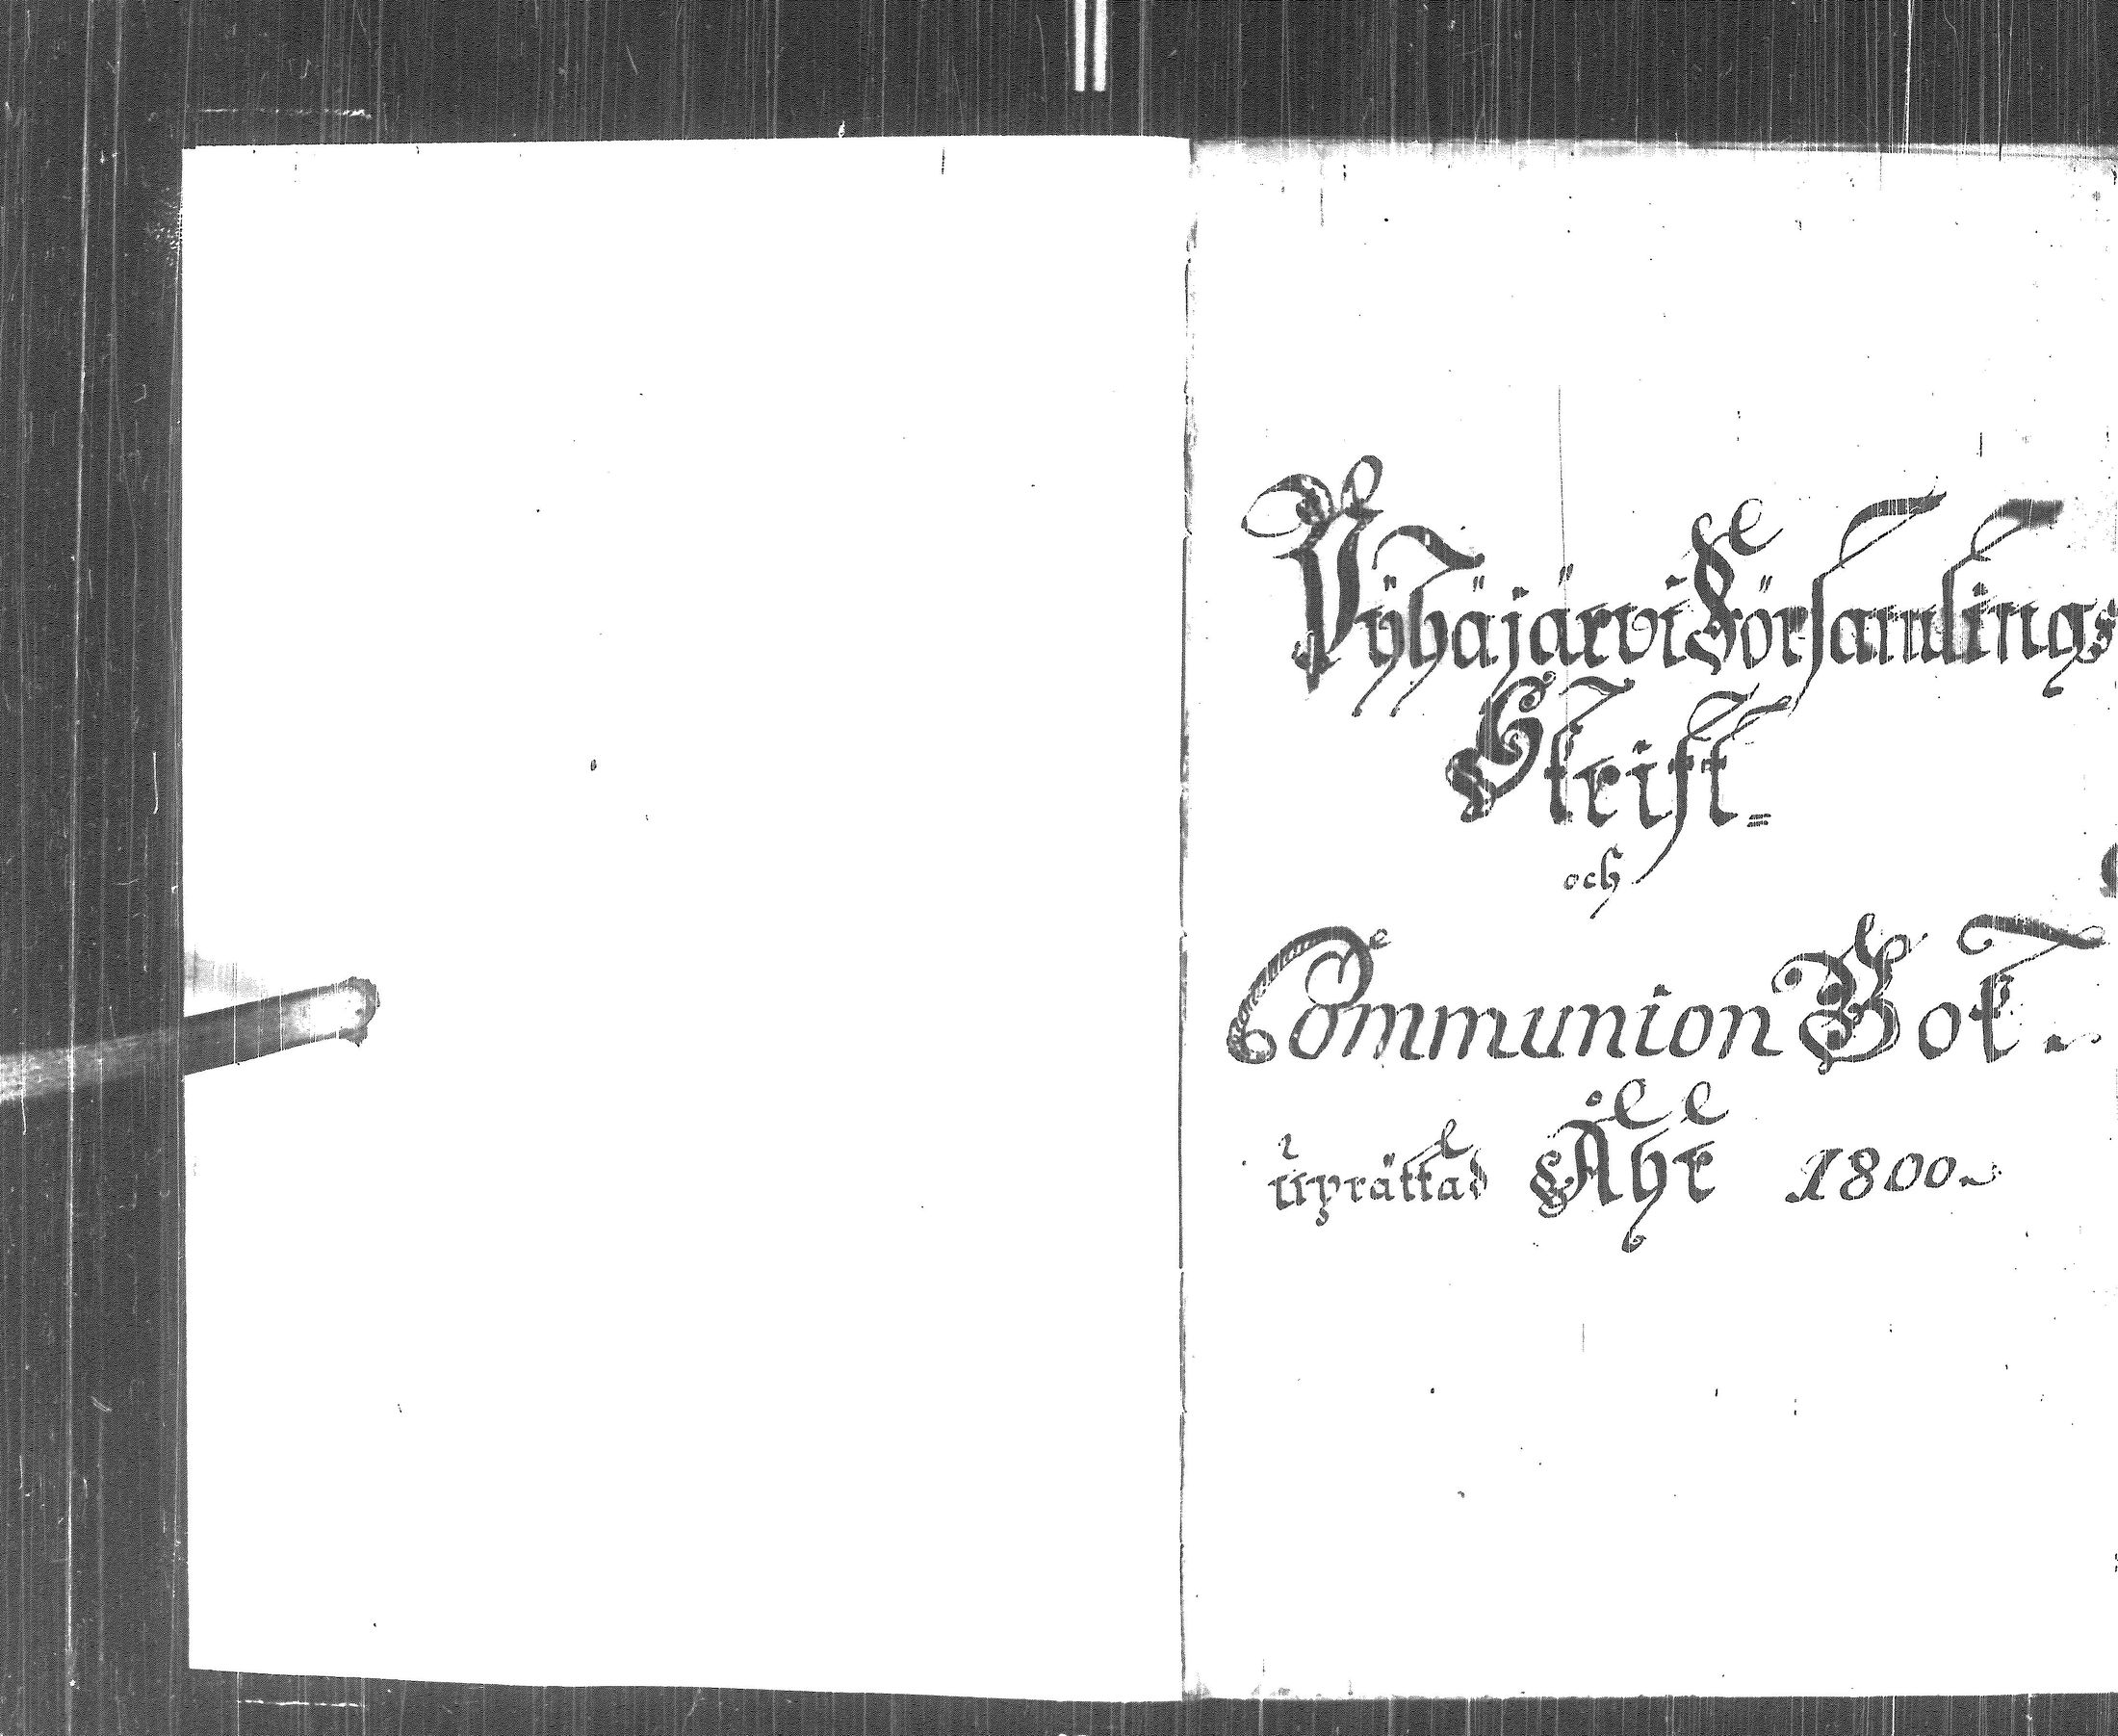 Pyhäjärvi Församlings
Skrift=
och
Communion Bok.
Uprättad Åhr 1800.